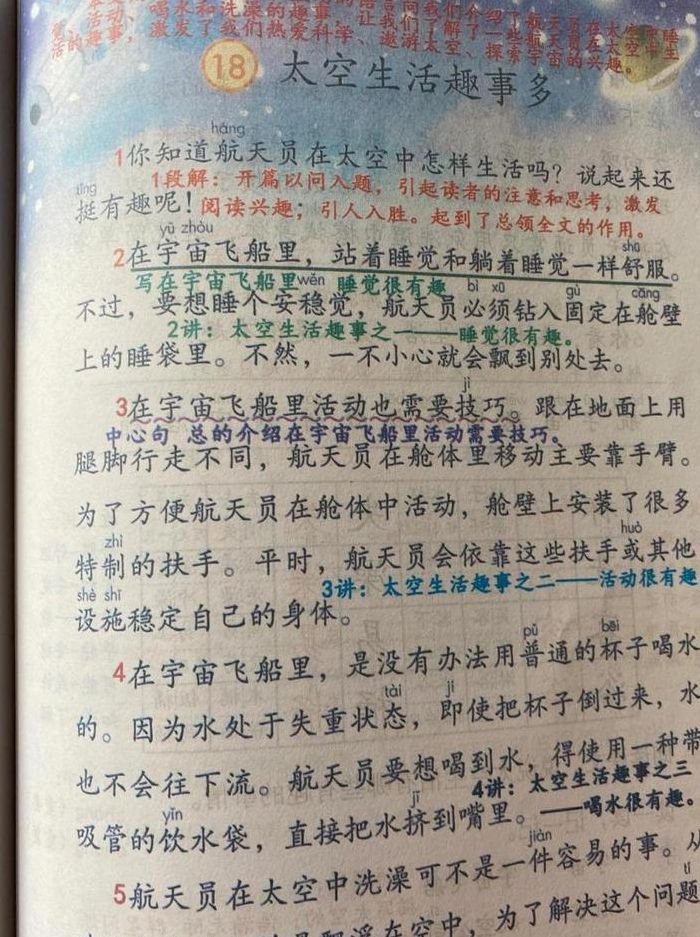 18 太空生活趣事多
háng
1你知道航天员在太空中怎样生活吗？说起来还
1段解：开篇以问入题，引起读者的注意和思考，激发
tǐng
挺有趣呢！阅读兴趣；引人入胜。起到了总领全文的作用。
yǔ zhòu
shū
2在宇宙飞船里，站着睡觉和躺着睡觉一样舒服。
写在宇宙飞船里 睡觉很有趣
wěn bì xū gù cāng
不过，要想睡个安稳觉，航天员必须钻入固定在舱壁
2讲：太空生活趣事之一——睡觉很有趣。
上的睡袋里。不然，一不小心就会飘到别处去。
jì
3在宇宙飞船里活动也需要技巧。跟在地面上用
中心句 总的介绍在宇宙飞船里活动需要技巧。
腿脚行走不同，航天员在舱体里移动主要靠手臂。
为了方便航天员在舱体中活动，舱壁上安装了很多
zhì huò
特制的扶手。平时，航天员会依靠这些扶手或其他
3讲：太空生活趣事之二——活动很有趣
shè shī
设施稳定自己的身体。
pǔ bēi
4在宇宙飞船里，是没有办法用普通的杯子喝水
tài jí
的。因为水处于失重状态，即使把杯子倒过来，水
也不会往下流。航天员要想喝到水，得使用一种带
4讲：太空生活趣事之三
yǐn jǐ
吸管的饮水袋，直接把水挤到嘴里。——喝水很有趣。
jiàn
5航天员在太空中洗澡可不是一件容易的事。从
tí
飘浮在空中，为了解决这个问题